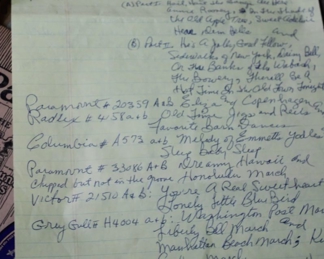 In the Shade of
the Old Apple Tree, Sweet Adeline
Hear Dem Bells and
(B) Part: He's A Jolly Good Fellow,
Sidewalks of New York, Daisy Bell,
On the Banks of the Wabash,
the Bowery, There'll Be A
Hot Time In The Old Town Tonight
Paramount # 20359 A+B Copenhagen and
Radiex # 4158 a+b Old Time Jigs and Reels
Favorite Barn Dances
Columbia # A573 a+b Melody of Emmett's Yodles
Sleep Baby Sleep
Paramount # 33086 A+B Dreamy Hawaii and
Chipped but not in the groove Honolulu March
Victor # 21510 A+B: You're A Real Sweetheart
Lonely Little Blue Bird
Grey Gull # H4004 a+b: Washington Post March
Liberty Bell March and
Manhattan Beach March &
March